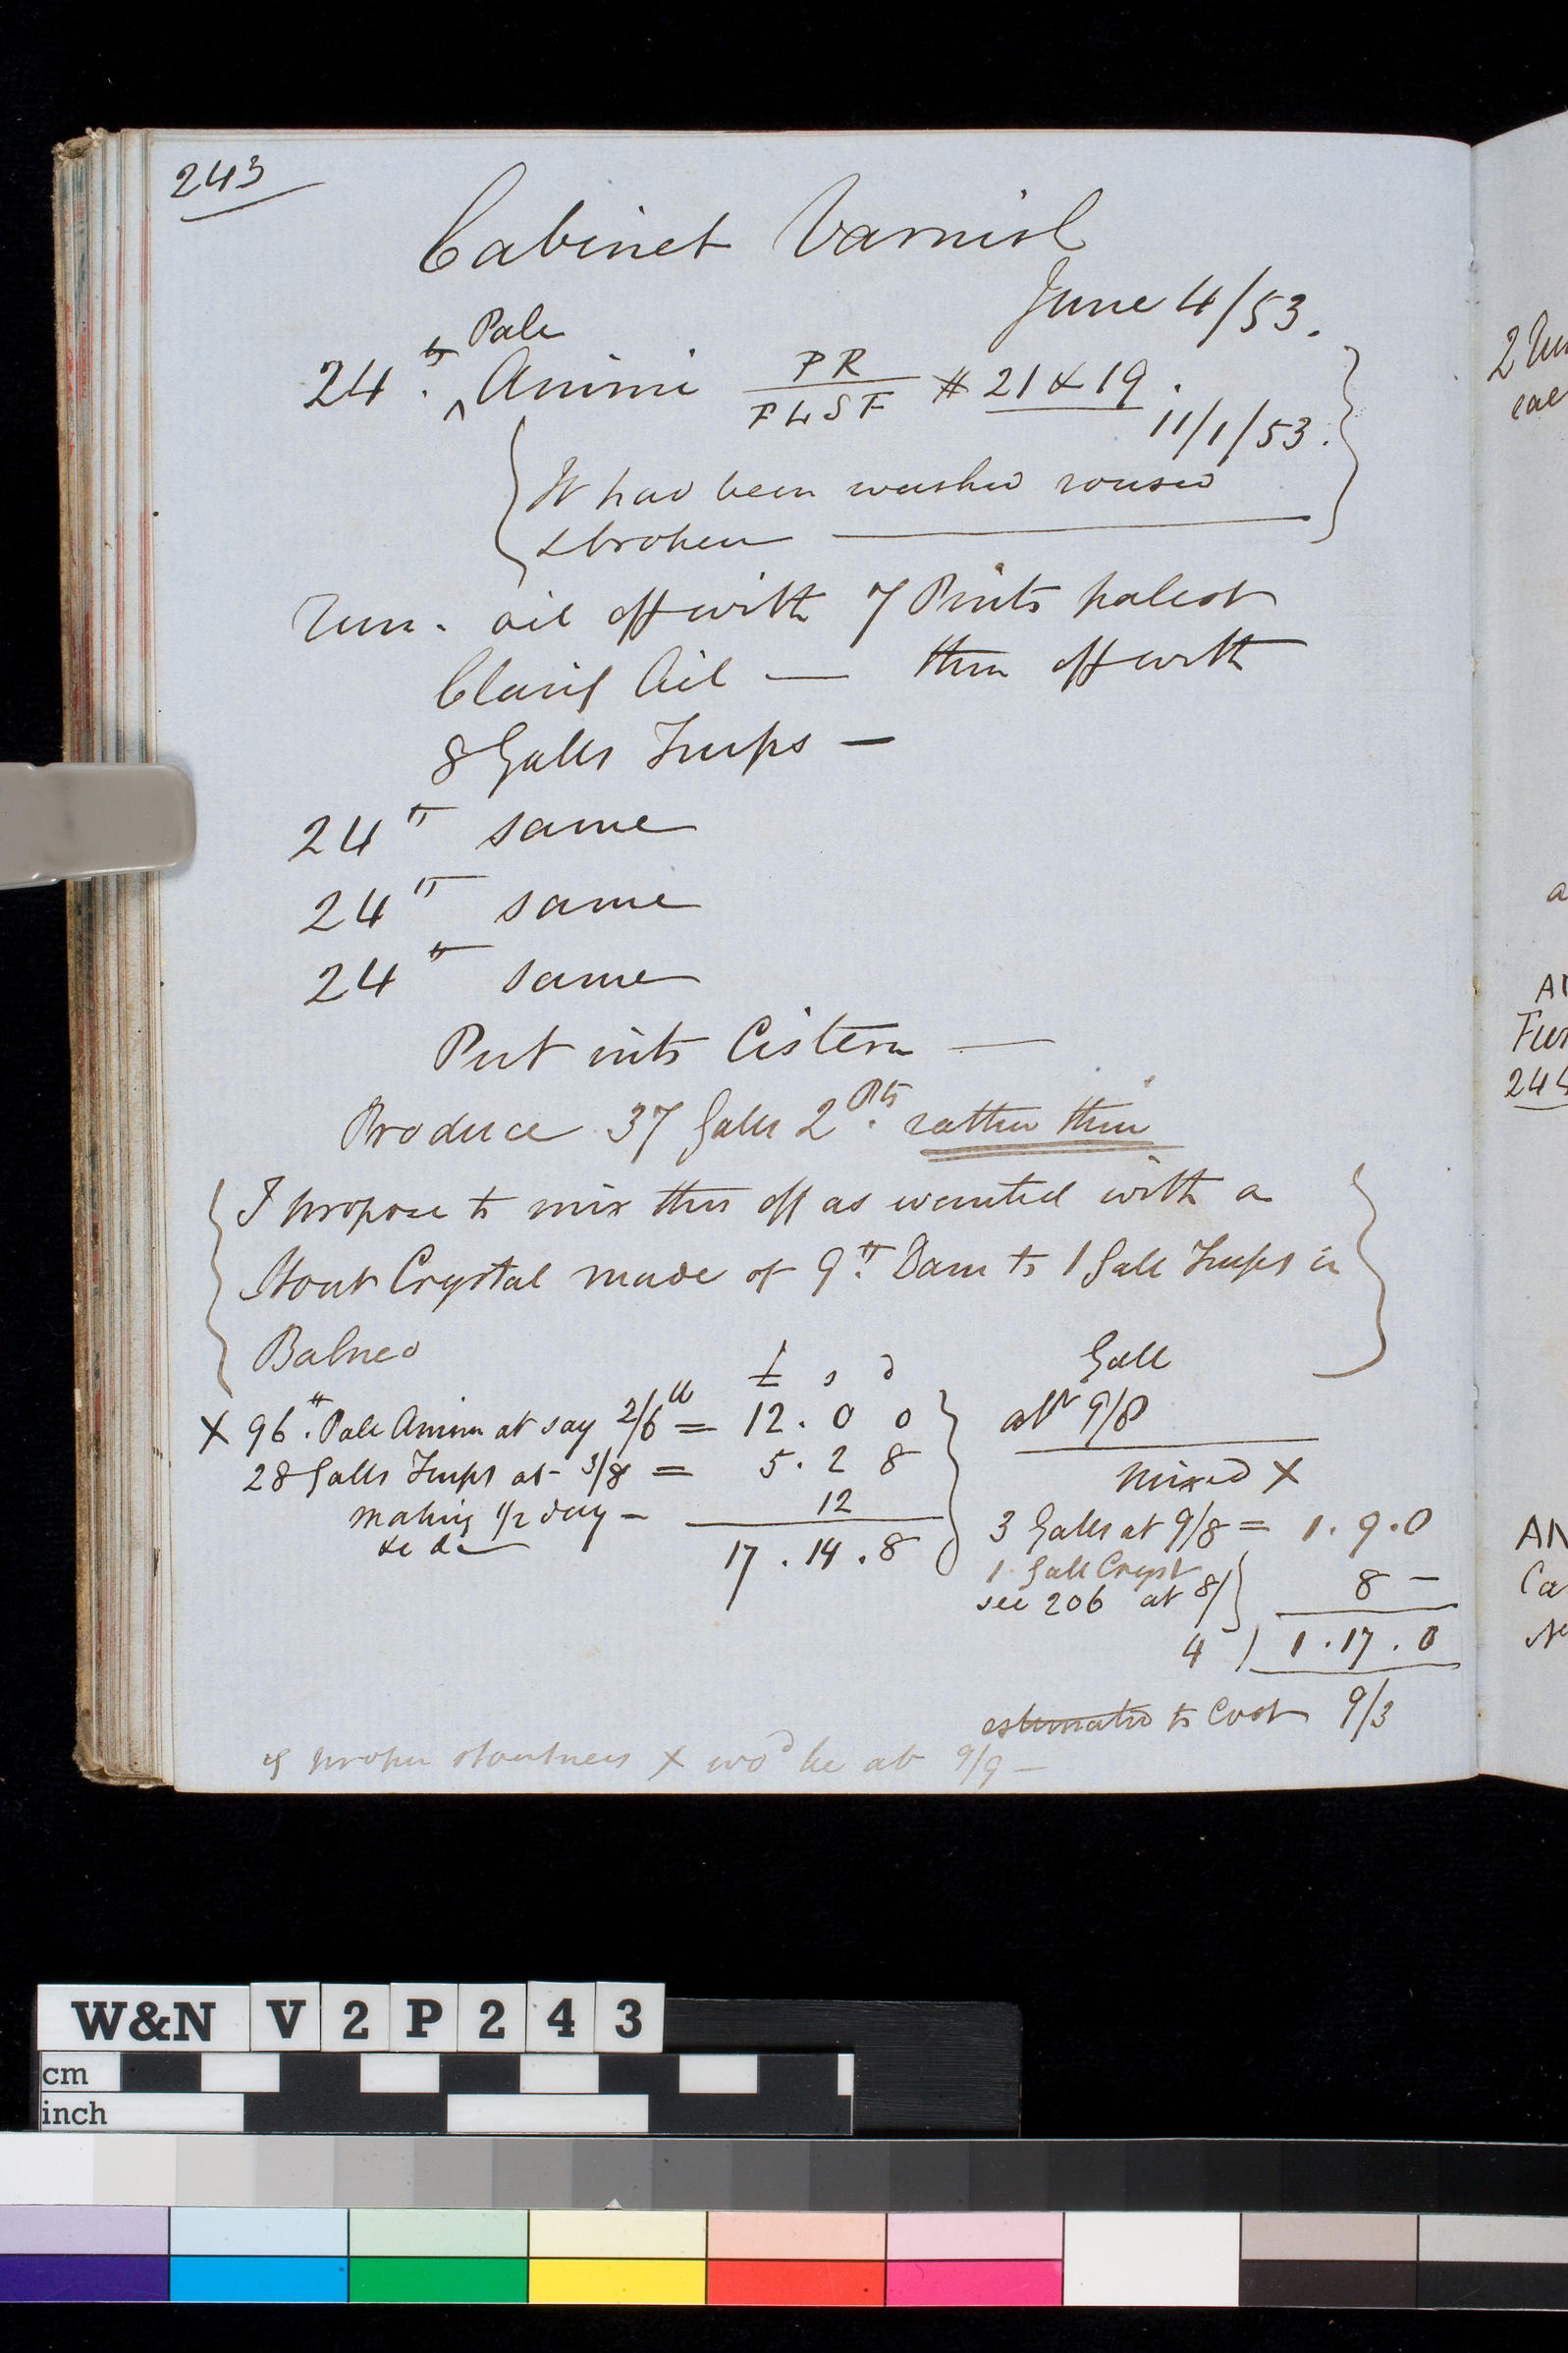 243
Cabinet Varnish
June 4/53.
Pale
24 lb Animi PR
FLSF # 21 & 19.
11/1/53.
It had been washed roused
& broken
Run. oil off with 7 Pints palest
Clarif Oil — thin off with
8 Galls Turps —
24 " same
24 " same
24 " same
Put into Cistern —
Produce 37 Galls 2 Pts. rather thin
I propose to mix this off as wanted with a
Stout Crystal made of 9 lb Dam to 1 Gall Turps in
Balneo
£ s d
X 96 lb. Pale Animi at say 2/6 lb = 12. 0 0
28 Galls Turps at 3/8 = 5. 2 8
making 1/2 day — 12
17. 14. 8
Gall
at 9/8
mixed X
3 Galls at 9/8 = 1. 9. 0
1 Gall Cryst
see 206 at 8/ 8 —
4 ) 1. 17. 0
estimated to Cost 9/3
of proper stoutness X wod be at 9/9 —
2 Run
AN
Fus
244
AN
Ca
W&N V2P243
cm
inch